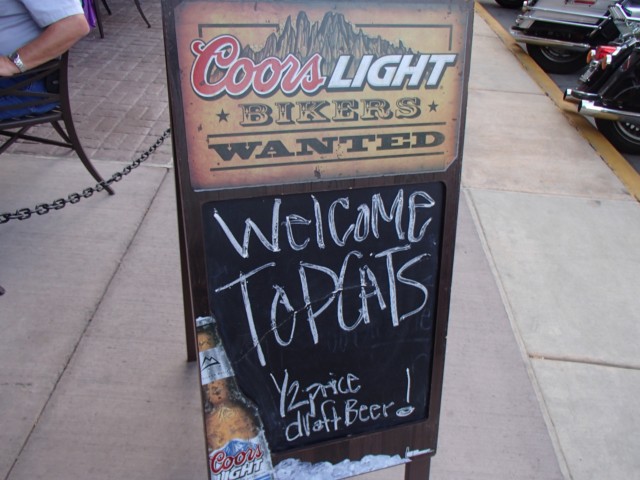 Coors LIGHT
BIKERS
WANTED
WELCOME
TOPCATS
1/2 price
draft Beer!
Coors
LIGHT